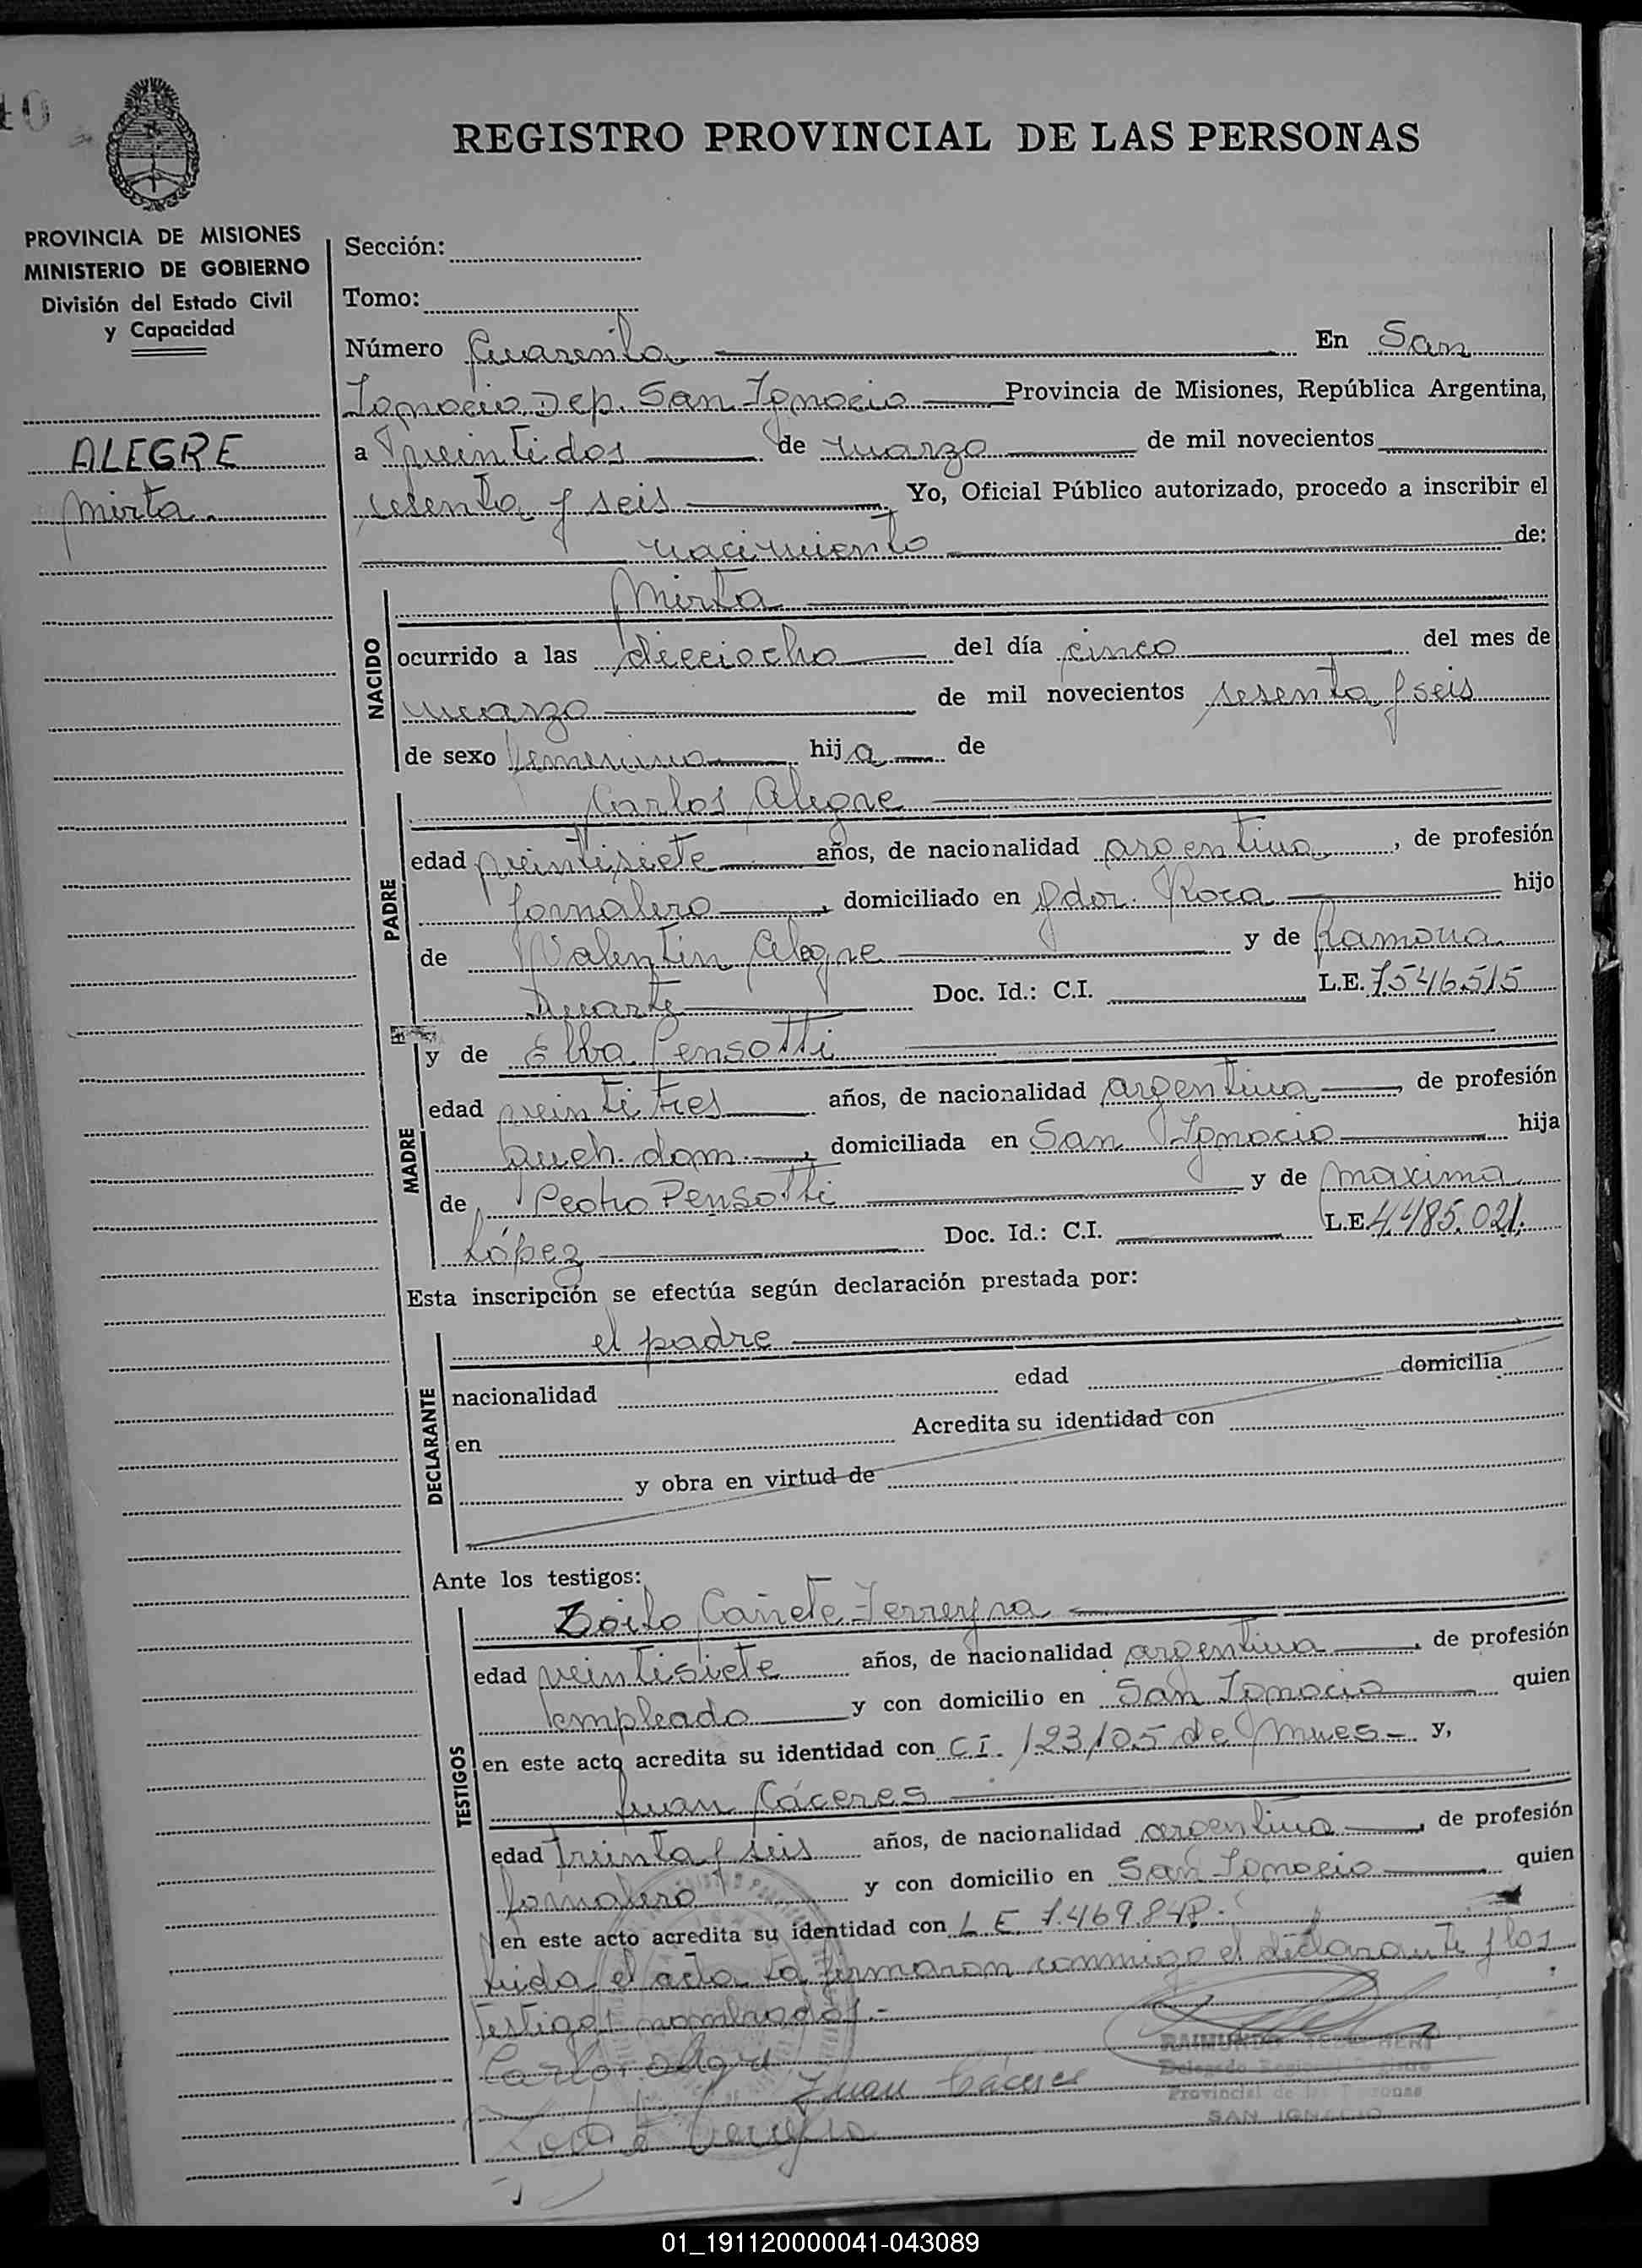 REGISTRO PROVINCIAL DE LAS PERSONAS
PROVINCIA DE MISIONES
MINISTERIO DE GOBIERNO
División del Estado Civil
y Capacidad
ALEGRE
Mirta
Sección:
Tomo:
Número Cuarenta En San
Ignacio, Dep. San Ignacio Provincia de Misiones, República Argentina,
a veintidos de marzo de mil novecientos
sesenta y seis Yo, Oficial Público autorizado, procedo a inscribir el
nacimiento de:
NACIDO
Mirta
ocurrido a las dieciocho del día cinco del mes de
marzo de mil novecientos sesenta y seis
de sexo femenino hija de
PADRE
Carlos Alegre
edad veintisiete años, de nacionalidad argentina, de profesión
jornalero, domiciliado en Gdor. Roca hijo
de Valentin Alegre y de Ramona
Duarte Doc. Id.: C.I. L.E. 7.546.515
MADRE
y de Elba Pensotti
edad veintitres años, de nacionalidad argentina, de profesión
queh. dom., domiciliada en San Ignacio hija
de Pedro Pensotti y de Maxima
López Doc. Id.: C.I. L.E. 4.485.021.
Esta inscripción se efectúa según declaración prestada por:
DECLARANTE
el padre
nacionalidad edad domicilia
en Acredita su identidad con
y obra en virtud de
Ante los testigos:
TESTIGOS
Zoilo Cañete Ferreyra
edad veintisiete años, de nacionalidad argentina, de profesión
empleado y con domicilio en San Ignacio quien
en este acto acredita su identidad con C.I. 123105 de Mnes- y,
Juan Cáceres
edad treinta y seis años, de nacionalidad argentina, de profesión
jornalero y con domicilio en San Ignacio quien
en este acto acredita su identidad con L.E.
leida el acta la firmaron conmigo el declarante y los
testigos nombrados.-
Carlos Alegre
Juan Cáceres
RAIMUNDO
Delegado Regional Registro
Provincial de las Personas
SAN IGNACIO
01_191120000041-043089